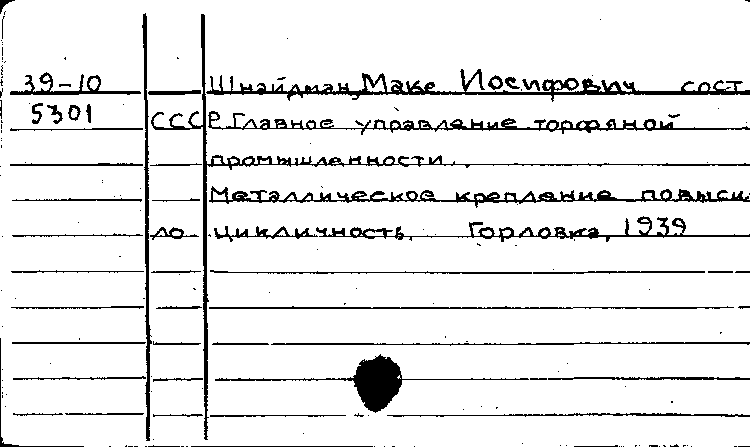 39-10 Шнайдман, Макс Иосифович сост
5301 СССР. Главное управление торфяной
промышленности..
Металлическое крепление повыси
ло цикличность. Горловка, 1939